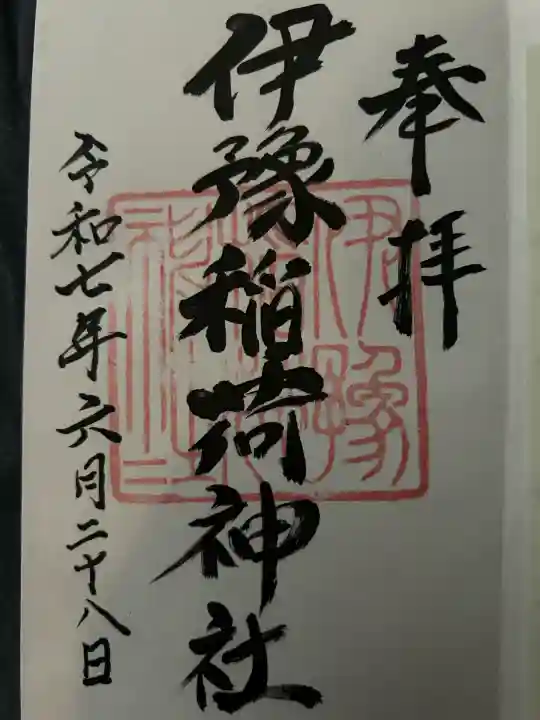 奉拝
伊豫稲荷神社
令和七年六月二十八日
伊豫